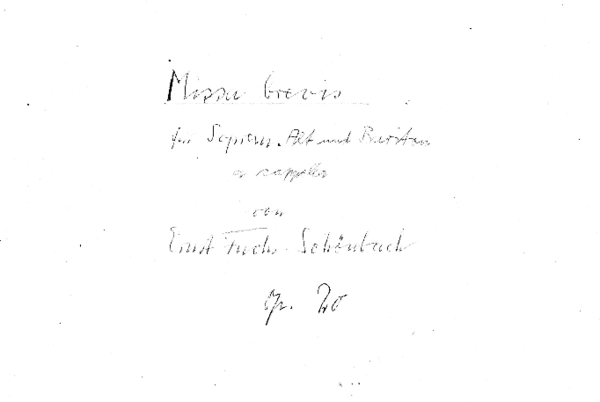 Missa brevis
für Sopran, Alt und Bariton
a cappella
von
Ernst Fuchs-Schönbach
Op. 20